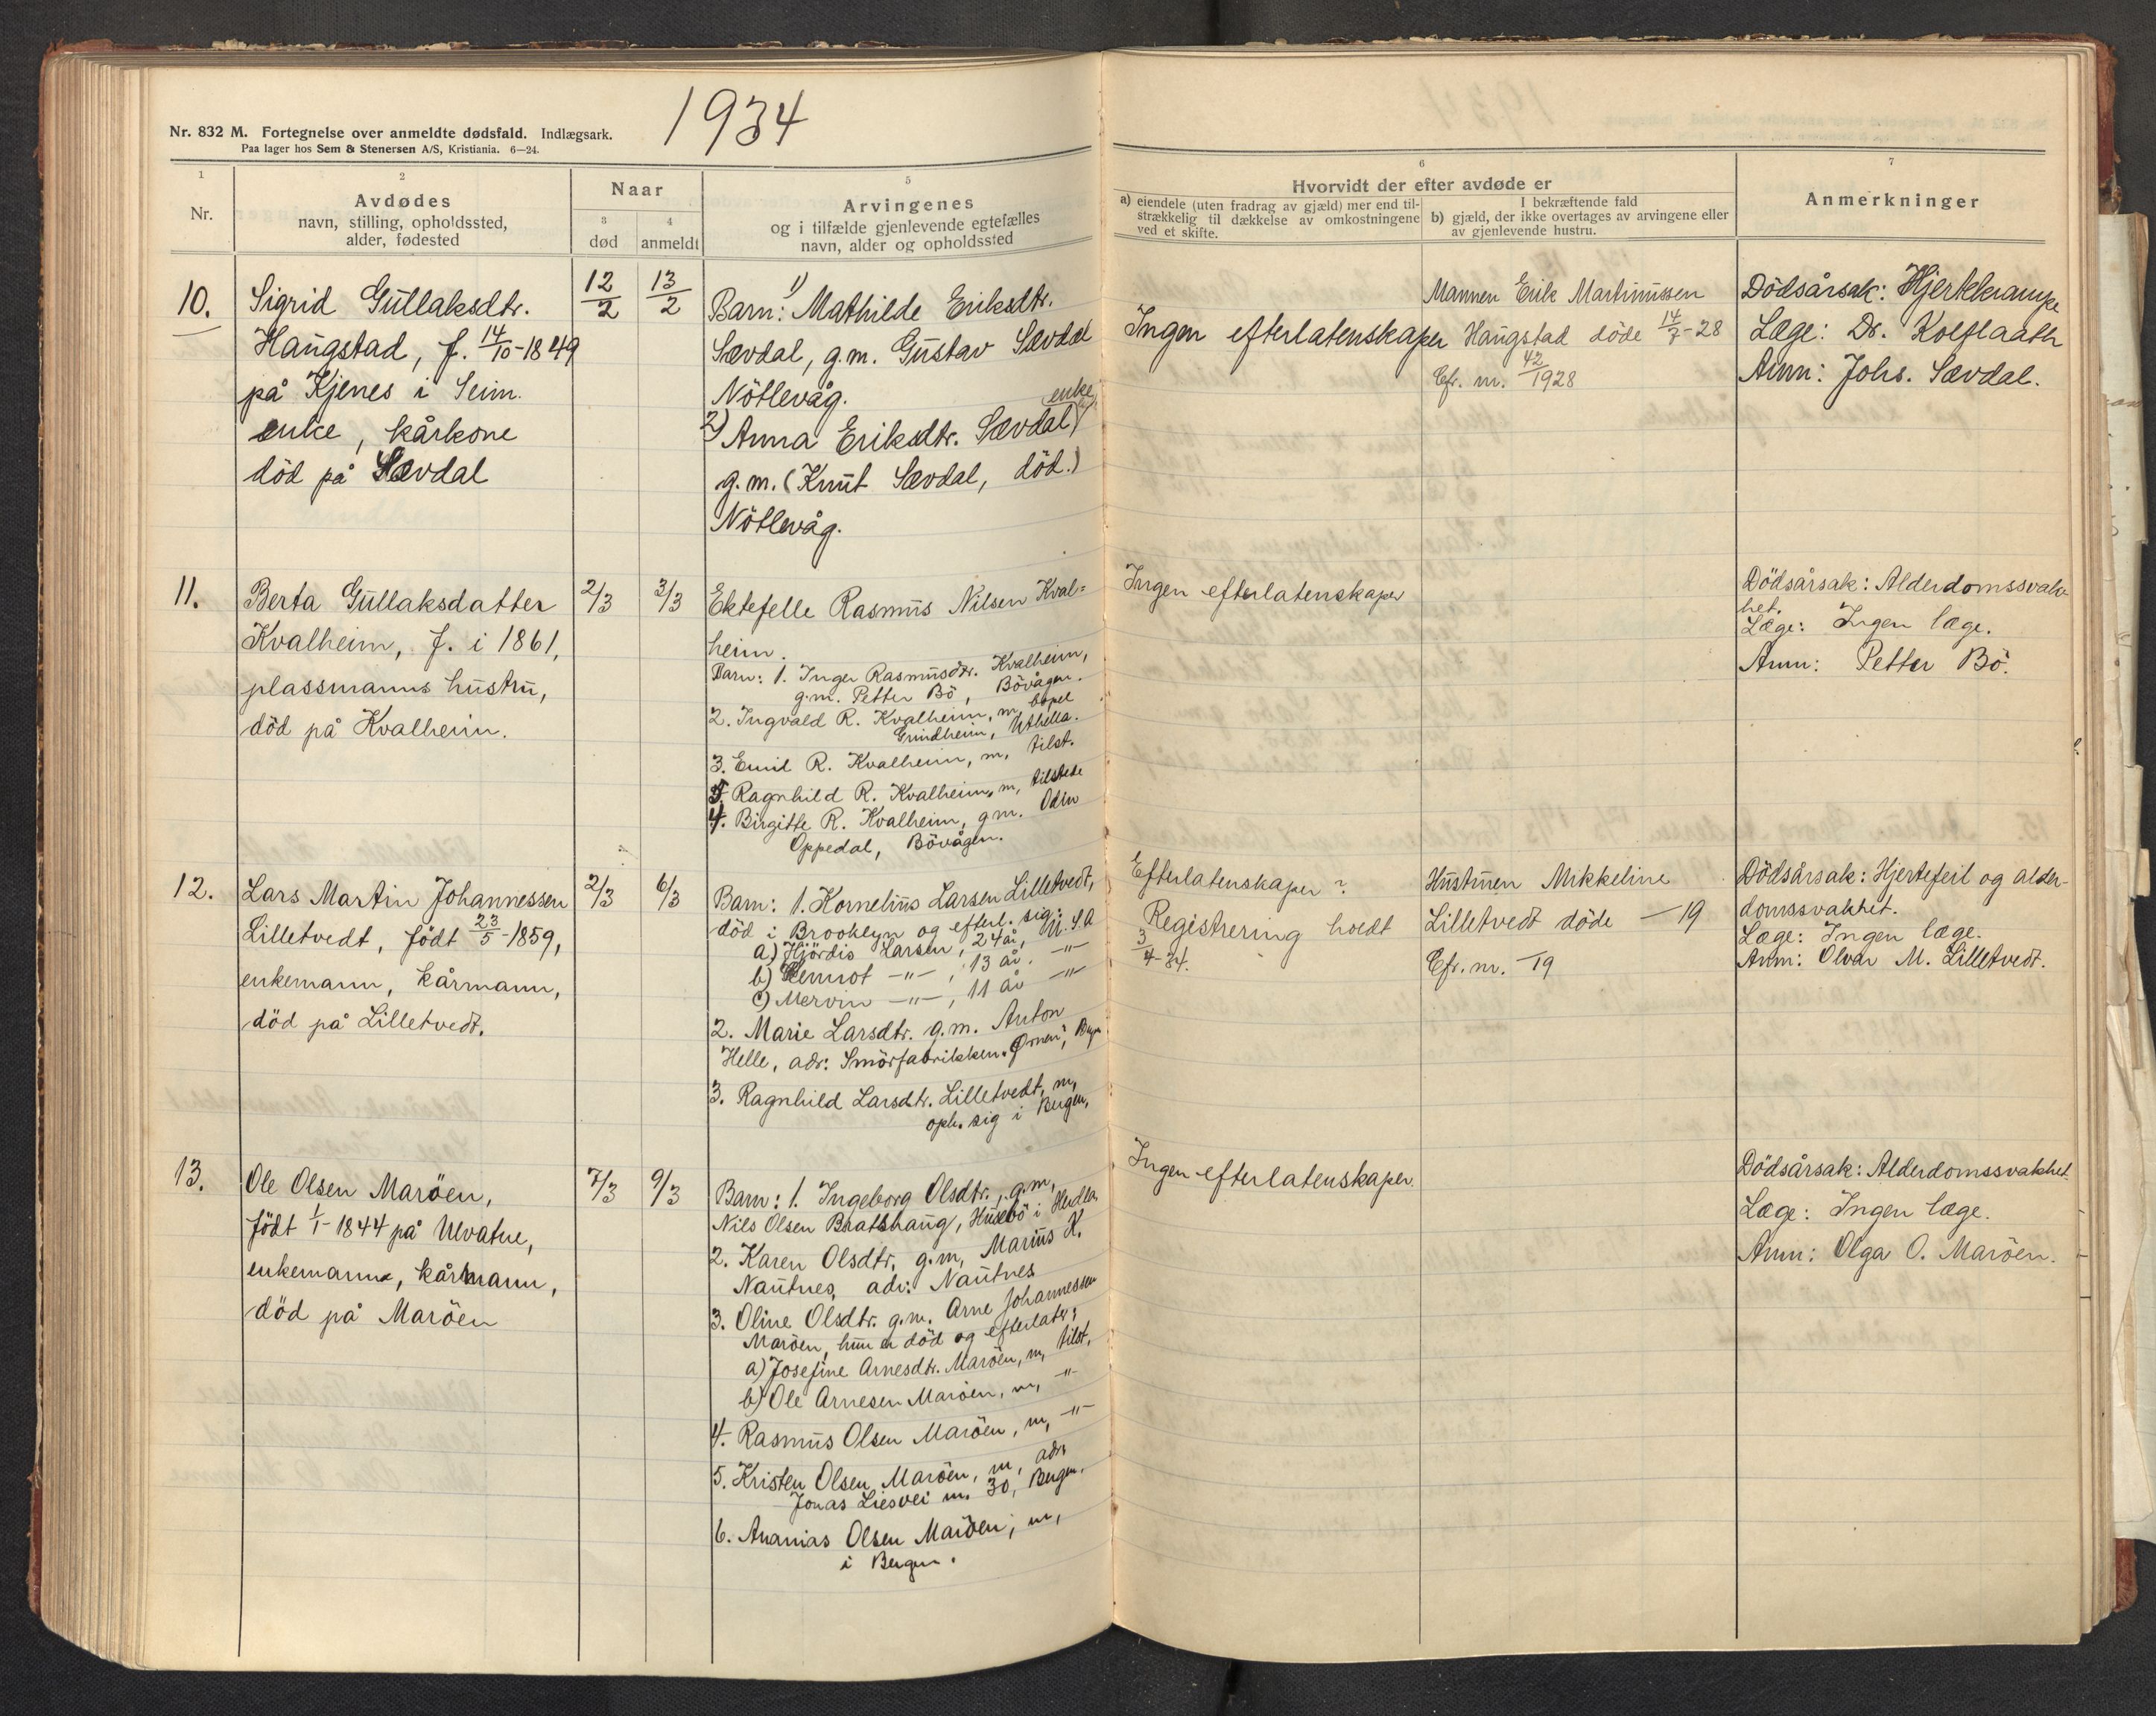 1934
Nr. 832 M. Fortegnelse over anmeldte dødsfald. Indlægsark.
Paa lager hos Sem & Stenersen A/S, Kristiania. 6—24.
1
Nr.
2
Avdødes
navn, stilling, opholdssted,
alder, fødested
Naar
3
død
4
anmeldt
5
Arvingenes
og i tilfælde gjenlevende egtefælles
navn, alder og opholdssted
6
Hvorvidt der efter avdøde er
a) eiendele (uten fradrag av gjæld) mer end til-
strækkelig til dækkelse av omkostningene
ved et skifte.
I bekræftende fald
b) gjæld, der ikke overtages av arvingene eller
av gjenlevende hustru.
7
Anmerkninger
10.
Sigrid Gullaksdtr.
Haugstad, f. 14/10-1849
på Kjenes i Seim.
enke, kårkone
død på Sævdal
12/2
13/2
Barn: 1) Mathilde Eriksdtr.
Sævdal, g.m. Gustav Sævdal
Nötlevåg.
enke
2) Anna Eriksdtr. Sævdal
g.m. (Knut Sævdal, död.)
Nötlevåg.
Ingen efterlatenskaper
Mannen Erik Martinussen
Haugstad döde 14/7-28
Cfr. nr. 42/1928
Dödsårsak: Hjertekrampe
Læge: Dr. Kolflaath
Anm: Johs. Sævdal.
11.
Berta Gullaksdatter
Kvalheim, f. i 1861,
plassmanns hustru,
död på Kvalheim.
2/3
3/3
Ektefelle Rasmus Nilsen Kval=
heim.
Barn: 1. Inger Rasmusdtr. Kvalheim,
g.m. Petter Bö, Bövågen.
2. Ingvald R. Kvalheim, m, bopel
Grindheim, Uthella.
3. Emil R. Kvalheim, m, tilst.
5. Ragnhild R. Kvalheim, m, tilstede
4. Birgitte R. Kvalheim, g.m. Odin
Oppedal, Bövågen.
Ingen efterlatenskaper
Dödsårsak: Alderdomssvak-
het.
Læge: Ingen læge.
Anm: Petter Bö.
12.
Lars Martin Johannessen
Lilletvedt, födt 23/5-1859,
enkemann, kårmann,
död på Lilletvedt.
2/3
6/3
Barn: 1. Kornelius Larsen Lilletvedt,
död i Brooklyn og efterl. sig:
a) Hjördis Larsen, 24 år, U.S.A
b) -"-, 13 år. -"-
c) Mervin -"-, 11 år -"-
2. Marie Larsdtr. g.m. Anton
Helle, adr: Smörfabrikken "Ørnen", Bergen
3. Ragnhild Larsdtr. Lilletvedt, m,
oph. sig i Bergen,
Efterlatenskaper?
Registrering holdt
3/4-34.
Hustruen Mikkeline
Lilletvedt döde -19
Cfr. nr. -19
Dödsårsak: Hjertefeil og alder-
domssvakhet.
Læge: Ingen læge.
Anm: Olvar M. Lilletvedt.
13.
Ole Olsen Maröen,
födt 1/1-1844 på Ulvatne,
enkemann, kårmann,
död på Maröen
7/3
9/3
Barn: 1. Ingeborg Olsdtr., g.m,
Nils Olsen Baatshaug, Husebö i Herdla
2. Karen Olsdtr, g.m, Marius K.
Nautnes, adr: Nautnes
3. Oline Olsdtr. g.m. Arne Johannessen
Maröen, hun er död og efterlater:
a) Josefine Arnesdtr. Maröen, m, tilst,
b) Ole Arnesen Maröen, m, -"-
4. Rasmus Olsen Maröen, m, -"-
5. Kristen Olsen Maröen, m, adr
Jonas Liesvei nr. 30, Bergen.
6. Ananias Olsen Maröen, m,
i Bergen.
Ingen efterlatenskaper.
Dödsårsak: Alderdomssvakhet.
Læge: Ingen læge.
Anm: Olga O. Maröen.